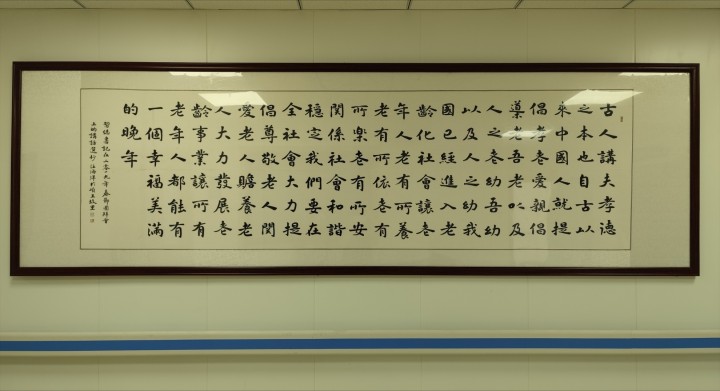 古人講夫孝德
之本也自古以
來中國人就提
倡孝老愛親倡
導老吾老以及
人之老幼吾幼
以及人之幼我
國已經進入老
齡化社會讓老
年人老有所養
老有所依老有
所樂老有所安
関係社會和諧
穩定我們要在
全社會大力提
倡尊敬老人関
愛老人贍養老
人大力發展老
齡事業讓所有
老年人都能有
一個幸福美滿
的晚年
習總書記在二零一九年春節團拜會
上的講話選抄